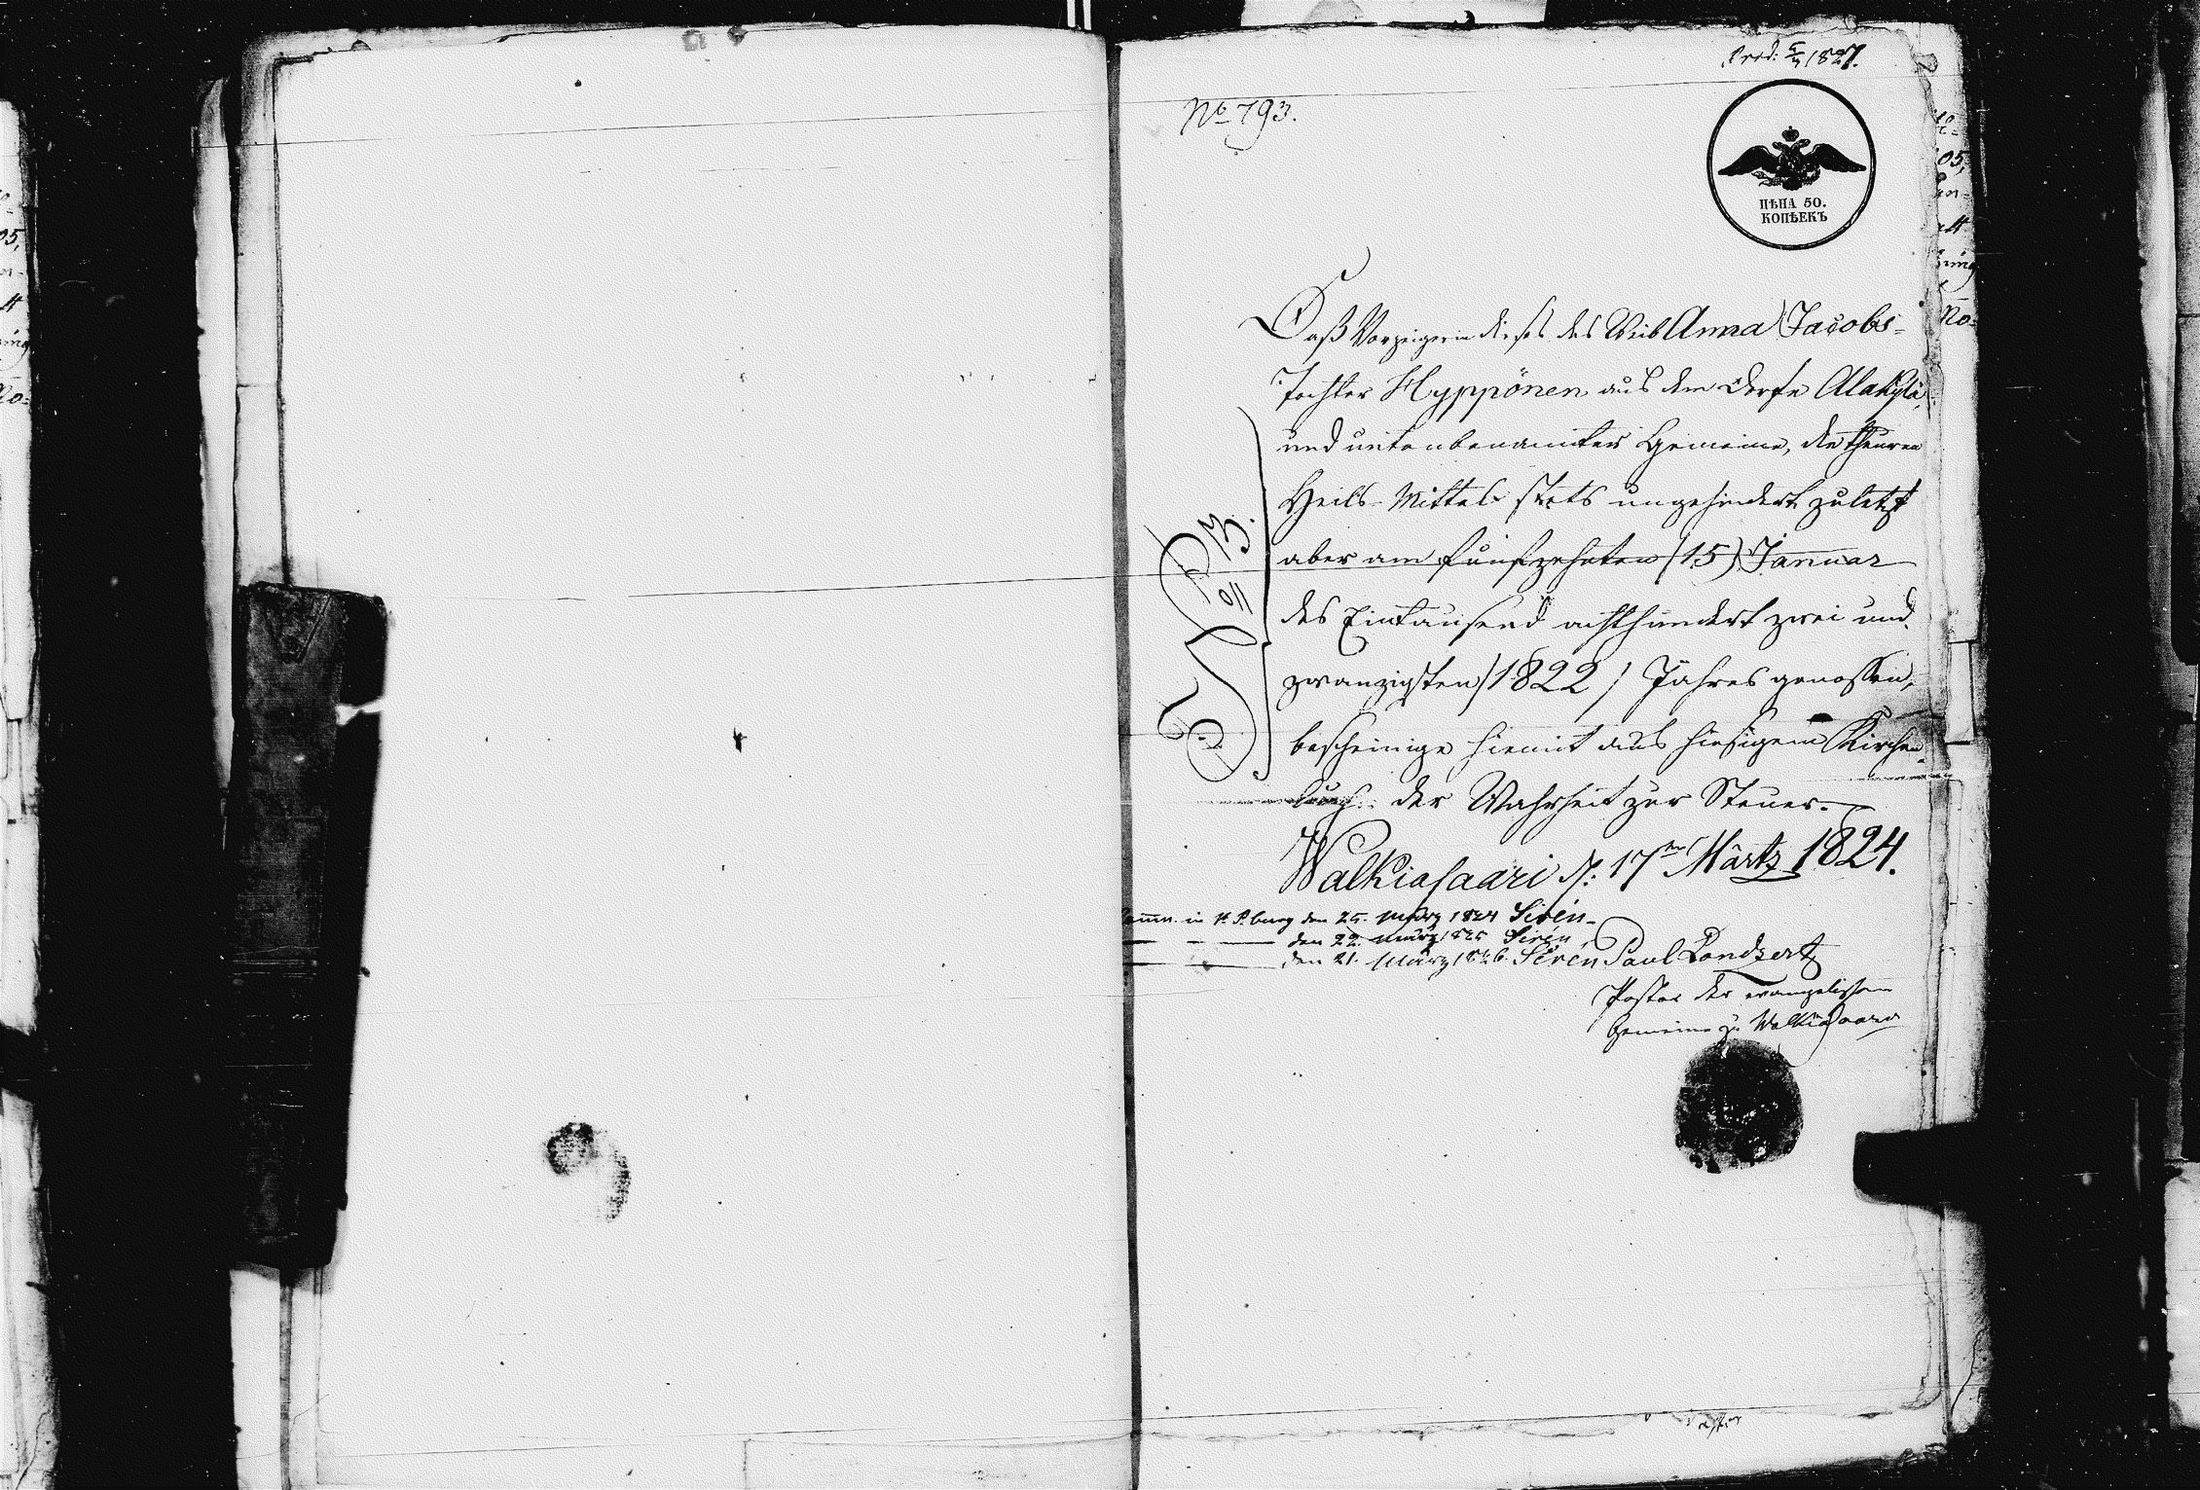 Prod: 5/4 1827.
№ 793.
ЦѢНА 50.
КОПѢЕКЪ
Daß Vorzeigerin dieses das Weib Anna Jacobs-
Tochter Hyppönen aus dem Dorfe Alakylä,
und untenbenannter Gemeine, die theuren
Heils-Mittel stets ungehindert zuletzt
aber am funfzehnten (15) Januar
des Eintausend achthundert zwei und
zwanzigsten /1822/ Jahres genossen,
bescheinige hiemit aus hiesigem Kirchen
buch der Wahrheit zur Steuer.
Walkiasaari d: 17ten Märtz 1824.
Comm. in St. P.burg den 25. März 1824 Sirén
den 22. März 1825 Sirén
den 21. März 1826. Sirén
Paul Landzert
Pastor der evangelischen
Gemeine zu Walkiasaari